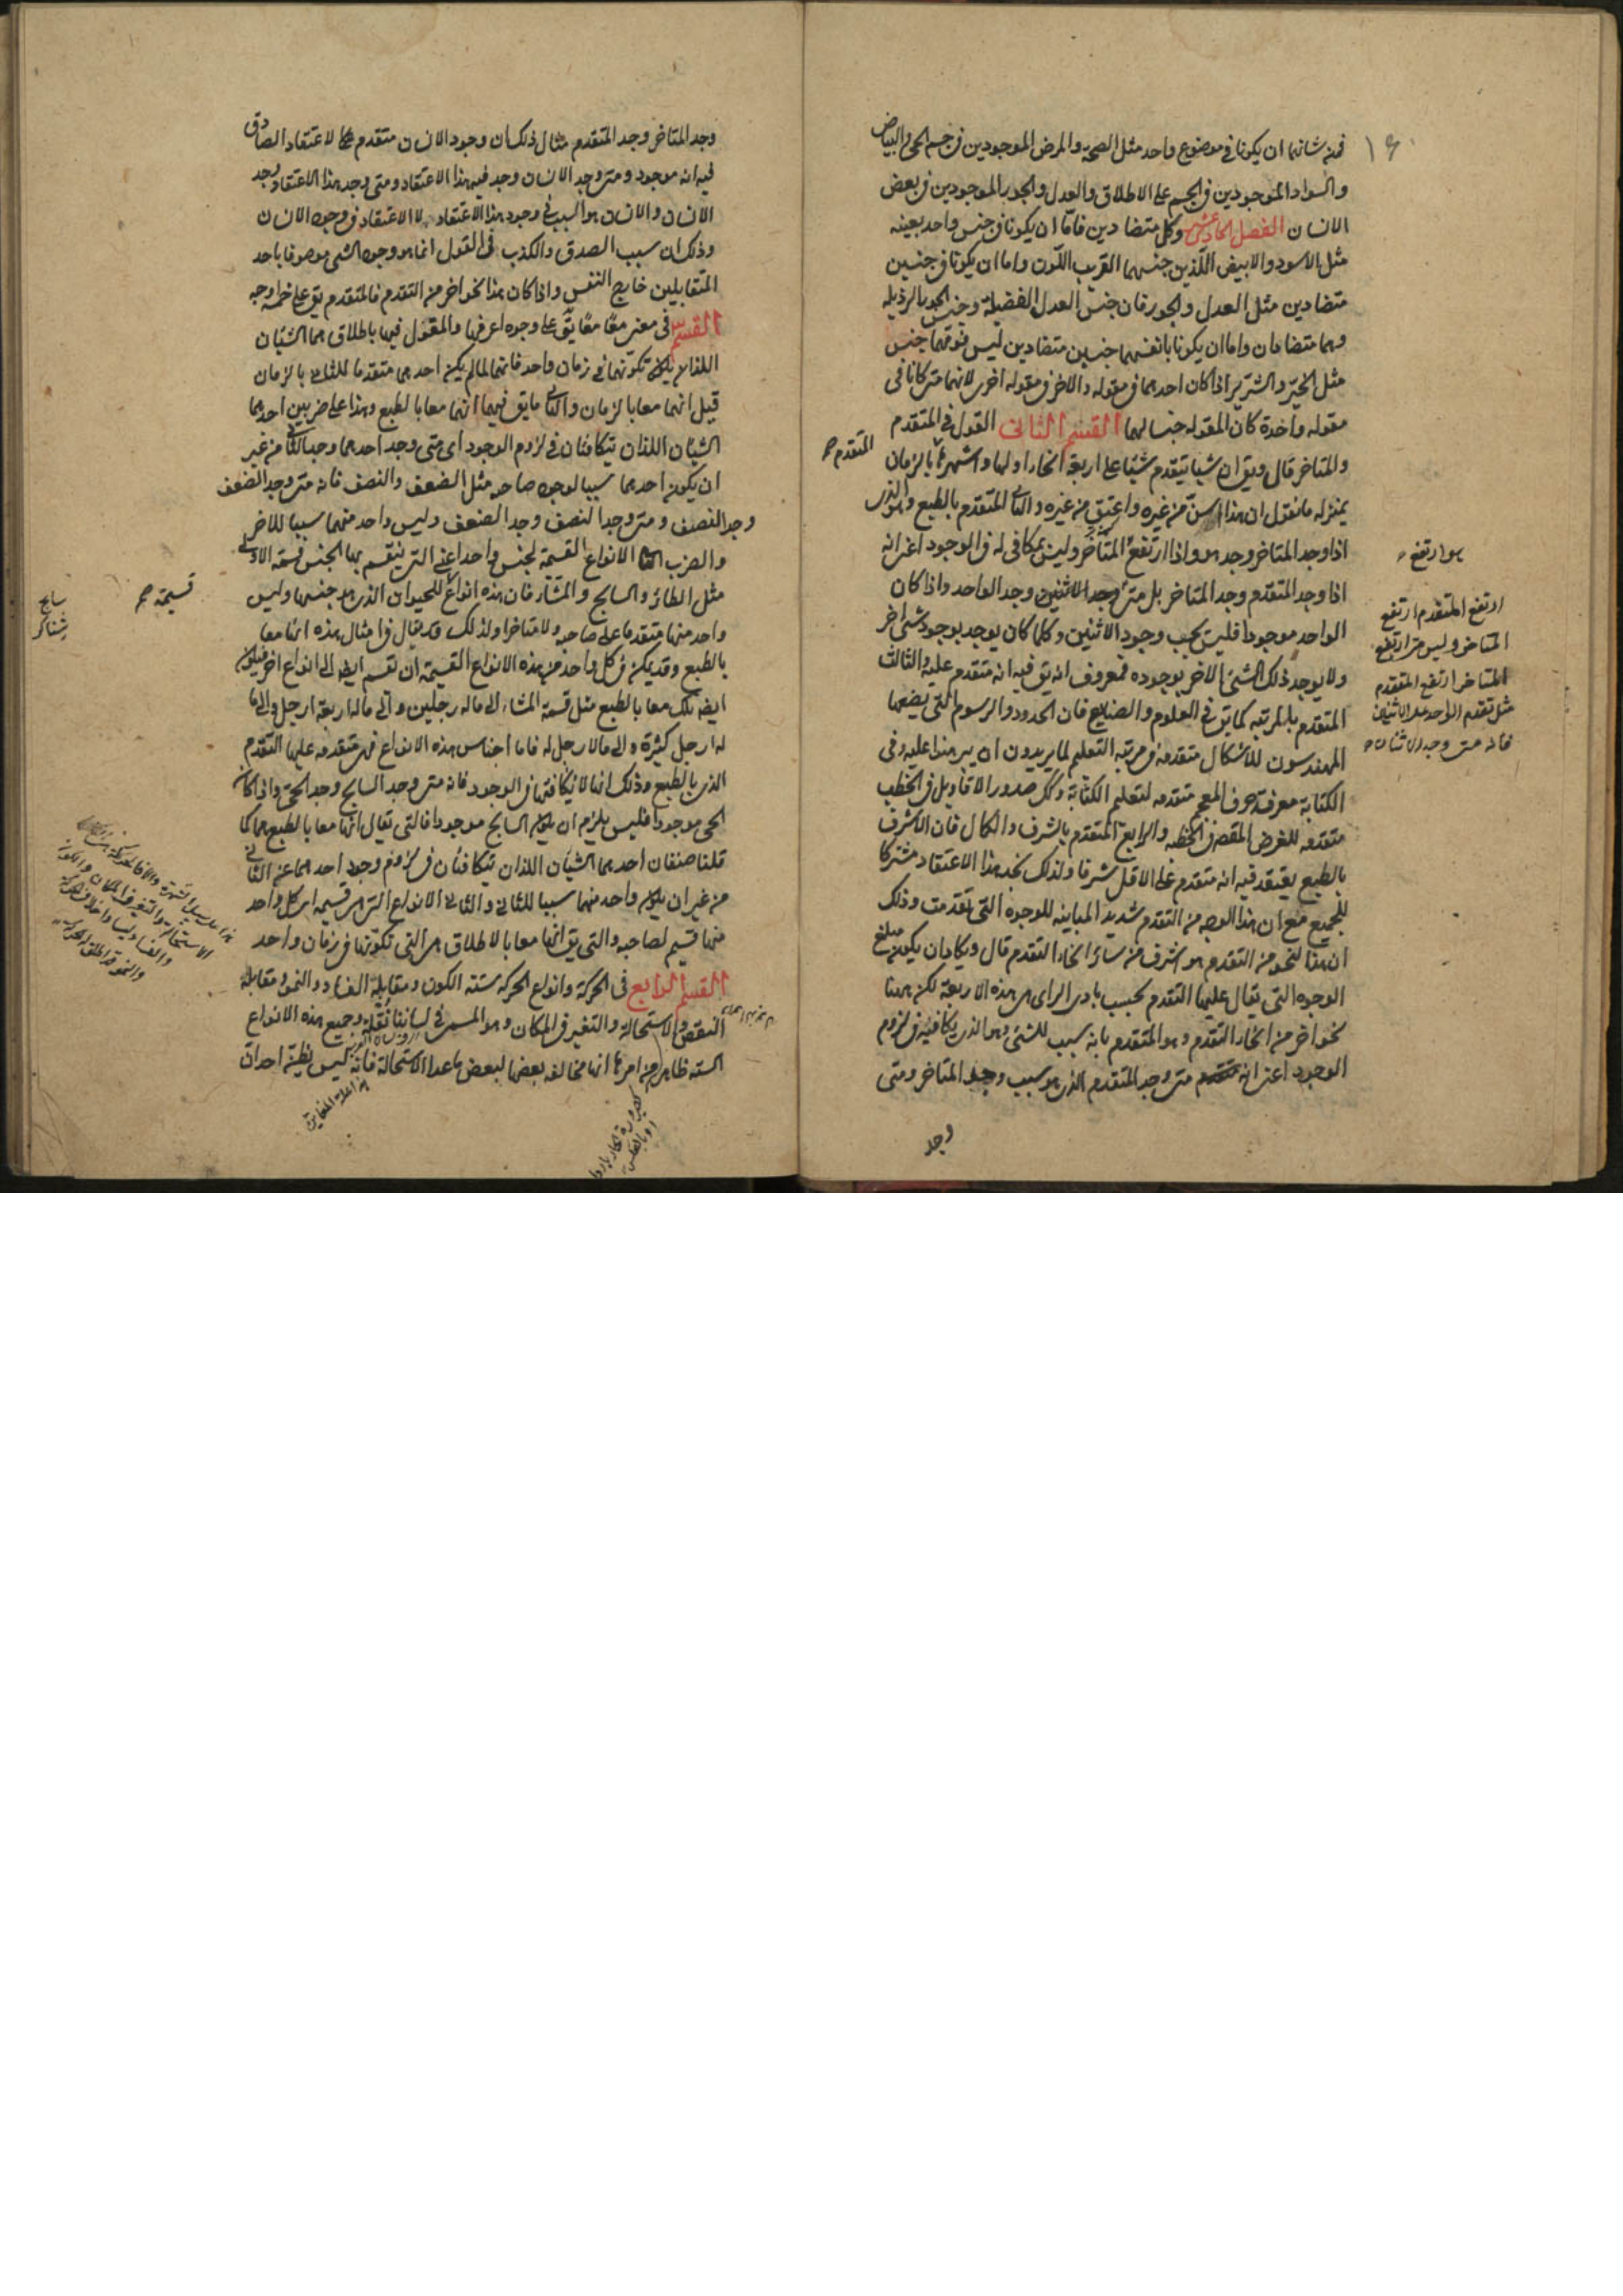 ١٦
فمن شانهما ان يكونا في موضوع واحد مثل الصحة والمرض الموجودين في جسم الحي والبياض
والسواد الموجودين في الجسم على الاطلاق والعدل والجور الموجودين في بعض
الانسان الفصل الحادي عشر وكل متضادين فاما ان يكونا في جنس واحد بعينه
مثل الاسود والابيض اللذين جنسهما القريب اللون واما ان يكونا في جنسين
متضادين مثل العدل والجور فان جنس العدل الفضيلة وجنس الجور الرذيلة
وهما متضادان واما ان يكونا بانفسهما جنسين متضادين ليس فوقهما جنس
مثل الخير والشر اذا كان احدهما في مقوله والاخر في مقوله اخرى لانهما متى كانا في
مقوله واحدة كان المقوله جنسا لهما القسم الثانى القول في المتقدم
والمتاخر قال ويق ان شيا يتقدم شيئا على اربعة انحاء اولها واشهرها بالزمان
بمنزله ما نقول ان هذا اسن من غيره واعتق من غيره والثاني المتقدم بالطبع وهو الذى
اذا وجد المتاخر وجد هو واذا ارتفع المتاخر وليس بمكافى له في الوجود اعنى انه
اذا وجد المتقدم وجد المتاخر بل متى وجد الاثنين وجد الواحد واذا كان
الواحد موجودا فليس يجب وجود الاثنين وكلما كان يوجد بوجود شئ اخر
ولا يوجد ذلك الشئ الاخر بوجوده فمعروف انه يق فيه انه متقدم عليه والثالث
المتقدم بالمرتبه كما يق في العلوم والصنايع فان الحدود والرسوم التى يضعها
المهندسون للاشكال متقدمه في مرتبه التعليم لما يريدون ان يبرهنوا عليه وفى
الكتابة معرفة حروف المعجم متقدمه لتعليم الكتابة وكك صدور الاقاويل في الخطب
متقدمه للغرض المقصود في الخطبه والرابع المتقدم بالشرف والكمال فان الاشرف
بالطبع يعتقد فيه انه متقدم على الاقل شرفا ولذلك نجد هذا الاعتقاد مشتركا
للجميع مع ان هذا الوجه من التقدم شديد المباينه للوجوه التى تقدمت وذلك
ان هذا النحو من التقدم هو اشرف من سائر انحاء التقدم قال ويكاد ان يكون مبلغ
الوجوه التى يقال عليها التقدم بحسب بادى الراى هى هذه الاربعة لكن ههنا
نحوا اخر من انحاء التقدم وهو المتقدم بانه سبب للشئ وهو الذى يكافيه في لزوم
الوجود اعنى انه متى وجد المتقدم الذى هو سبب وجد المتاخر ومتى
وجد
المتقدم
هو ارتفع
ارتفع المتقدم ارتفع
المتاخر وليس متى ارتفع
المتاخر ارتفع المتقدم
مثل تقدم الواحد على الاثنين
فانه متى وجد الاثنان
وجد المتاخر وجد المتقدم مثال ذلك ان وجود الانسان متقدم للاعتقاد الصادق
فيه انه موجود ومتى وجد الانسان وجد فيه هذا الاعتقاد ومتى وجد هذا الاعتقاد وجد
الانسان والانسان هو السبب في وجود هذا الاعتقاد لا الاعتقاد في وجود الانسان
وذلك ان سبب الصدق والكذب في القول انما هو وجود الشئ موصوفا باحد
المتقابلين خارج النفس واذا كان هذا نحوا اخر من التقدم فالمتقدم يق على خمسة اوجه
القسم في معنى معا معا يق على وجوه اعرفها والمقول فيها باطلاق هما الشيئان
اللذان تكونهما في زمان واحد فانهما لما لم يكن احدهما متقدما للثاني بالزمان
قيل انهما معا بالزمان والثاني ما يق فيهما انهما معا بالطبع وهذا على ضربين احدهما
الشيئان اللذان يتكافئان في لزوم الوجود اى متى وجد احدهما وجد الثاني من غير
ان يكون احدهما سببا لوجود صاحبه مثل الضعف والنصف فانه متى وجد الضعف
وجد النصف ومتى وجد النصف وجد الضعف وليس واحد منهما سببا للاخر
والضرب الثاني الانواع القسيمة لجنس واحد اعنى التى ينقسم بها الجنس قسمة الاولى
مثل الطائر والسابح والمشاء فان هذه انواع للحيوان الذى هو جنسها وليس
واحد منها متقدما على صاحبه ولا متاخرا ولذلك قد يقال في امثال هذه انها معا
بالطبع وقد يمكن في كل واحد من هذه الانواع القسيمة ان تقسم ايضا الى انواع اخر فيكون
ايضه تلك معا بالطبع مثل قسمة المشاء الى ما له رجلين والى ما له اربعة ارجل والى ما
له ارجل كثيرة والى ما لا رجل له فاما اجناس هذه الانواع فهى متقدمة عليها التقدم
الذى بالطبع وذلك انها لا تكافئها في الوجود فانه متى وجد السابح وجد الحى واذا كان
الحى موجودا فليس يلزم ان يكون السابح موجودا فالتى يقال انها معا بالطبع هما كما
قلنا صنفان احدهما الشيئان اللذان يتكافئان في لزوم وجود احدهما عن الثاني
من غير ان يكون واحد منهما سببا للثاني والثاني الانواع التى هى قسيمه اى كل واحد
منها قسيم لصاحبه والتى يق انها معا بالاطلاق هى التى تكونها في زمان واحد
القسم الرابع فى الحركة وانواع الحركة ستة الكون ومقابله الفساد والنمو ومقابله
النقص والاستحالة والتغير في المكان وهو المسمى في لساننا نقلة وجميع هذه الانواع
الستة ظاهر من امرها انها مخالفه بعضها لبعض ما عدا الاستحالة فانه ليس يظن احد ان
قسيمة
سابح